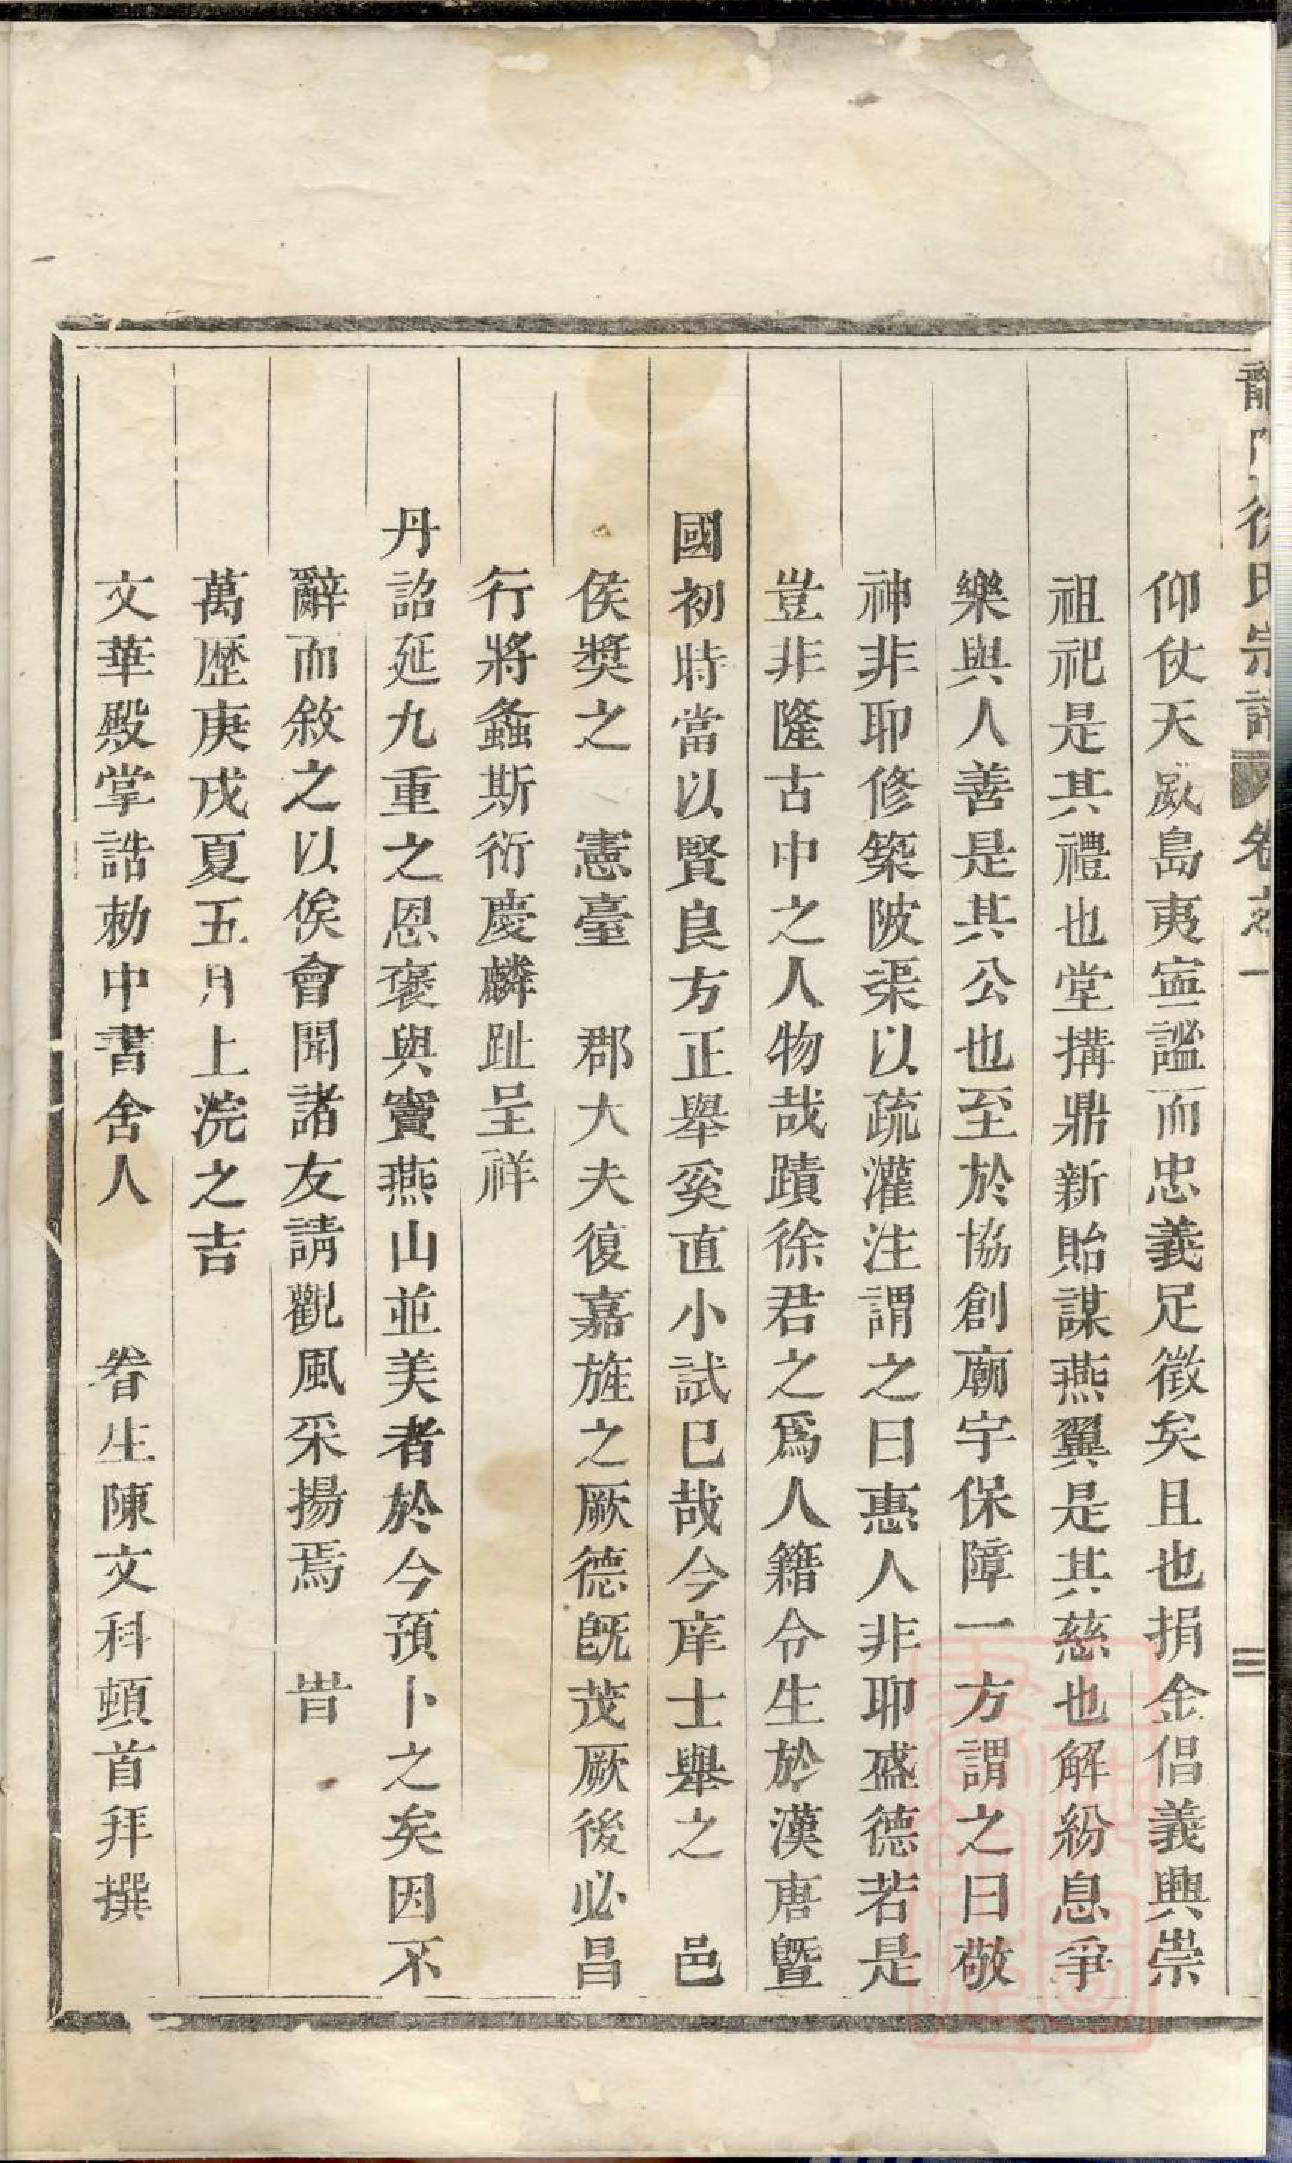 徐氏宗譜 卷之一 三
仰仗天威島夷寍謐而忠義足徵矣且也捐金倡義興崇
祖祀是其禮也堂搆鼎新貽謀燕翼是其慈也解紛息爭
樂與人善是其公也至於協創廟宇保障一方謂之曰敬
神非耶修築陂渠以疏灌注謂之曰惠人非耶盛德若是
豈非隆古中之人物哉蹟徐君之爲人籍令生於漢唐曁
國初時當以賢良方正舉奚直小試巳哉今庠士舉之 邑
侯獎之 憲臺 郡大夫復嘉旌之厥德既茂厥後必昌
行將螽斯衍慶麟趾呈祥
丹詔延九重之恩褒與竇燕山並美者於今預卜之矣因不
辭而敘之以俟會聞諸友請觀風采揚焉 旹
萬歷庚戌夏五月上浣之吉
文華殿掌誥勅中書舍人 眷生陳文科頓首拜撰